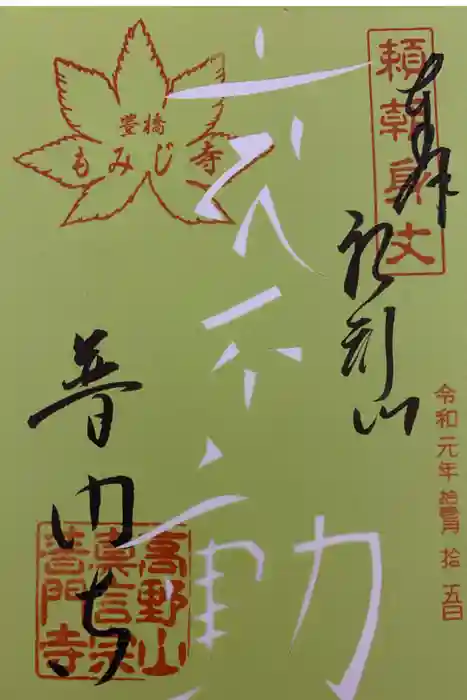 頼朝身丈
奉拝
船形山
令和元年拾壹月拾五日
不動
豊橋
もみじ寺
普門寺
高野山
眞言宗
普門寺